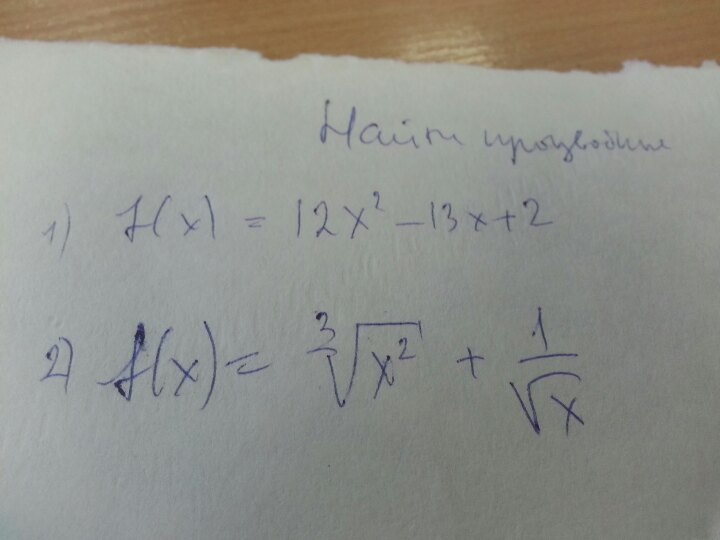 Найти производные
1) f(x) = 12x² – 13x + 2
2) f(x) = ∛(x²) + 1/√x